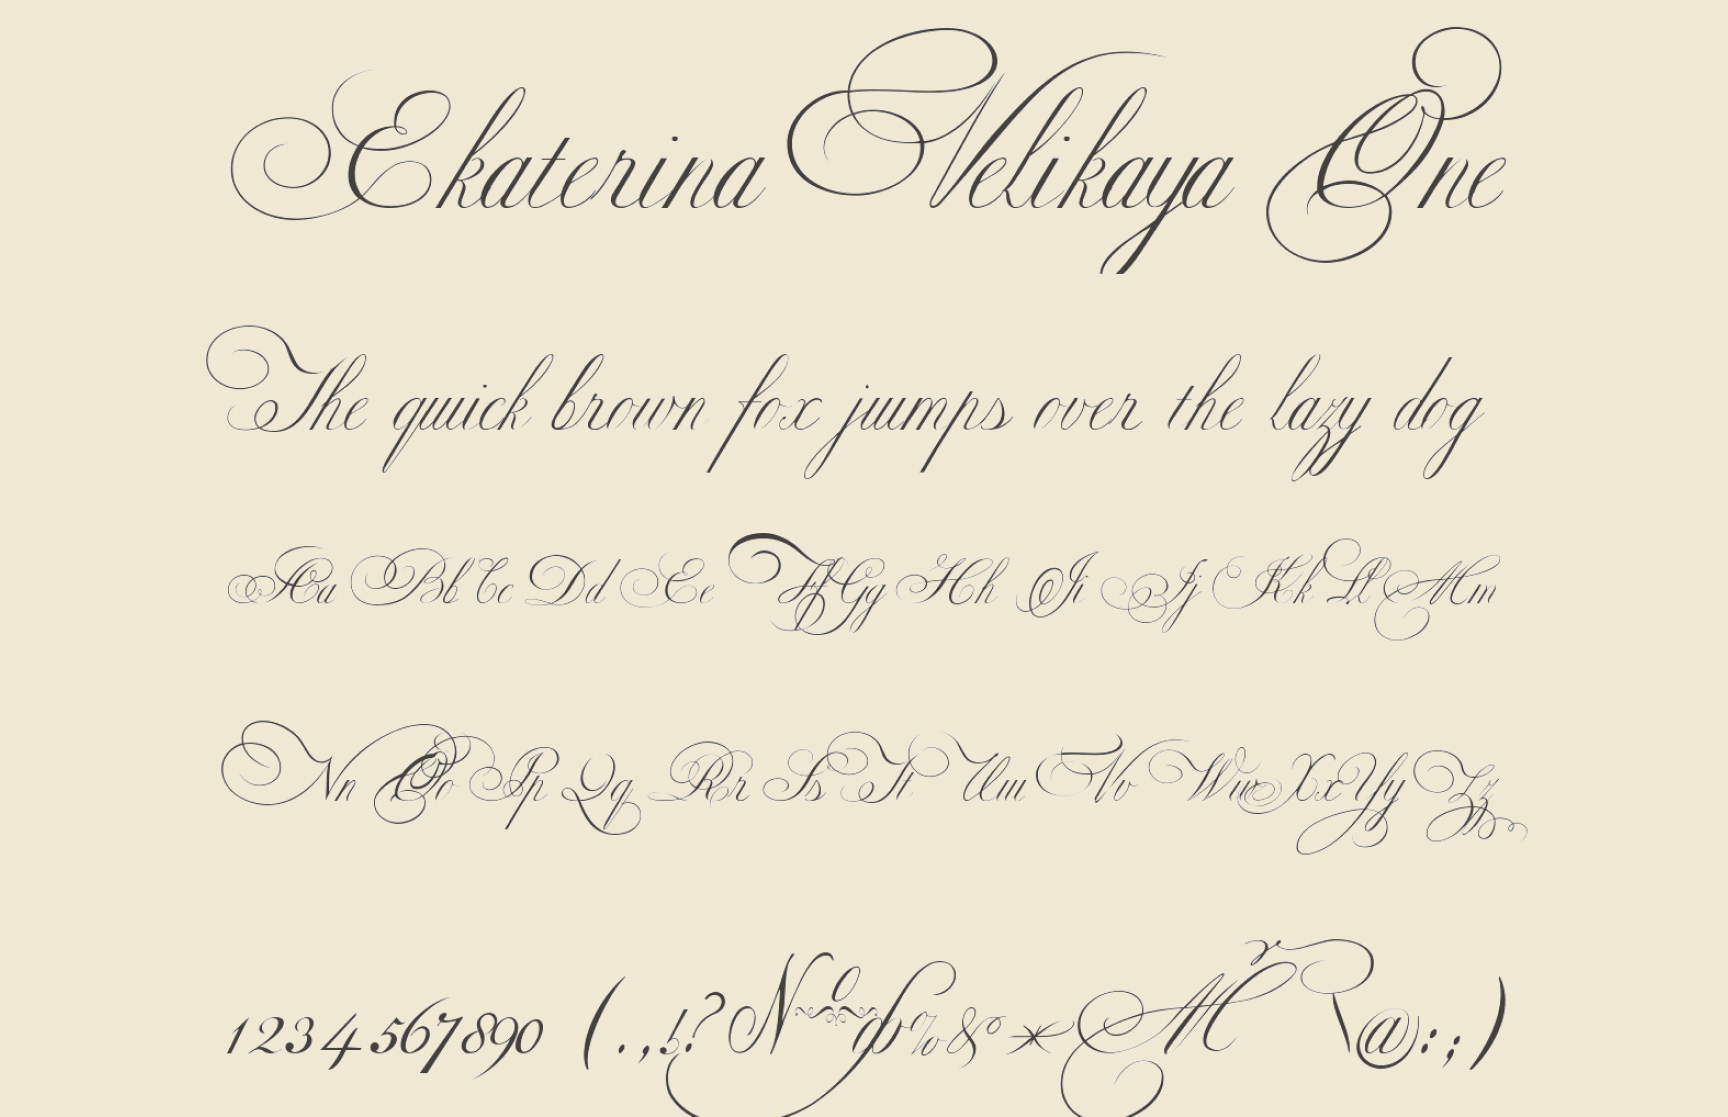 Ekaterina Velikaya One
The quick brown fox jumps over the lazy dog
Aa Bb Cc Dd Ee Ff Gg Hh Ii Jj Kk Ll Mm
Nn Oo Pp Qq Rr Ss Tt Uu Vv Ww Xx Yy Zz
1234567890 (.,!? № % & * @:;)